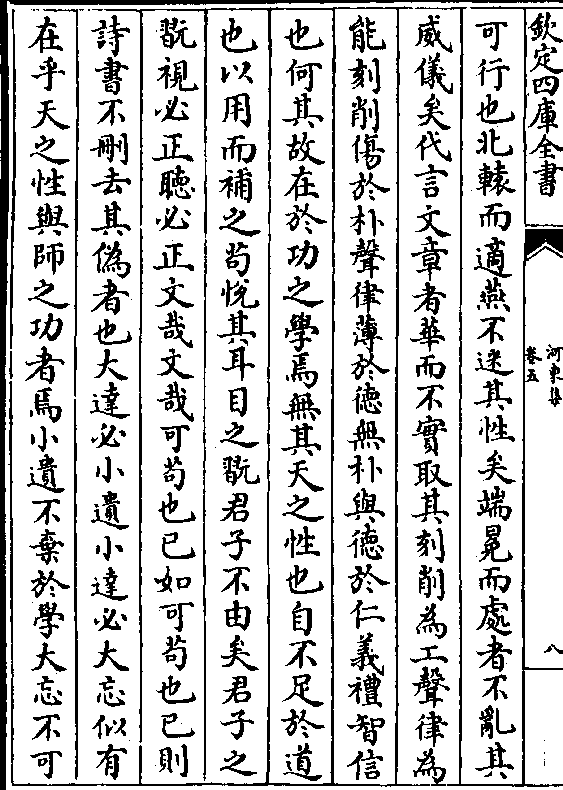 欽定四庫全書
河東集
卷五
八
可行也北轅而適燕不迷其性矣端冕而處者不亂其
威儀矣代言文章者華而不實取其刻削為工聲律為
能刻削傷於朴聲律薄於德無朴與德於仁義禮智信
也何其故在於功之學焉無其天之性也自不足於道
也以用而補之苟悅其耳目之翫君子不由矣君子之
翫視必正聽必正文哉文哉可苟也已如可苟也已則
詩書不刪去其偽者也大達必小遺小達必大忘似有
在乎天之性與師之功者焉小遺不棄於學大忘不可